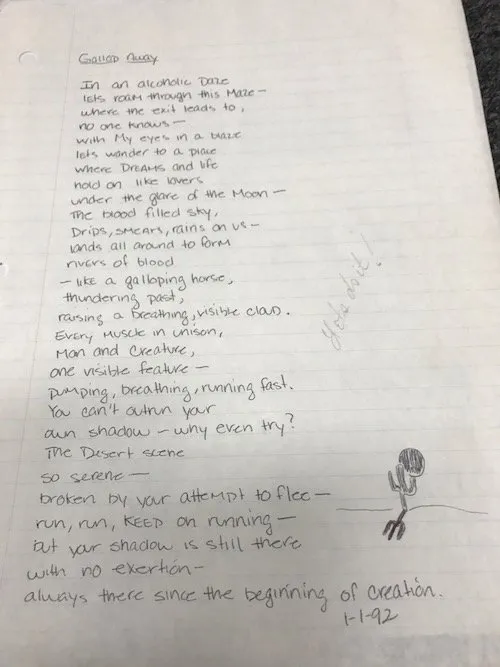 Gallop Away
In an alcoholic Daze
lets roam through this Maze—
where the exit leads to,
no one knows—
with My eyes in a blaze
lets wander to a place
where DREAMS and life
hold on like lovers
under the glare of the Moon—
The blood filled sky,
Drips, smears, rains on us—
lands all around to form
rivers of blood
—like a galloping horse,
thundering past,
raising a breathing, visible cloud.
Every Muscle in unison,
Man and Creature,
one visible feature—
pumping, breathing, running fast.
You can't outrun your
own shadow—why even try?
The Desert scene
so serene—
broken by your attempt to flee—
run, run, KEEP on running—
but your shadow is still there
with no exertion—
always there since the beginning of creation.
1-1-92